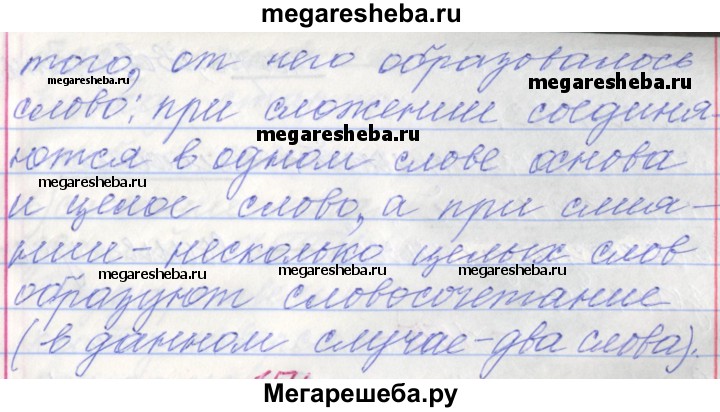 megaresheba.ru
того, от него образовалось
megaresheba.ru
megaresheba.ru
слово: при сложении соединя-
megaresheba.ru
ются в одном слове основа
megaresheba.ru
и целое слово, а при слия-
нии - несколько целых слов
megaresheba.ru megaresheba.ru megaresheba.ru
образуют словосочетание
(в данном случае - два слова).
Мегарешеба.ру